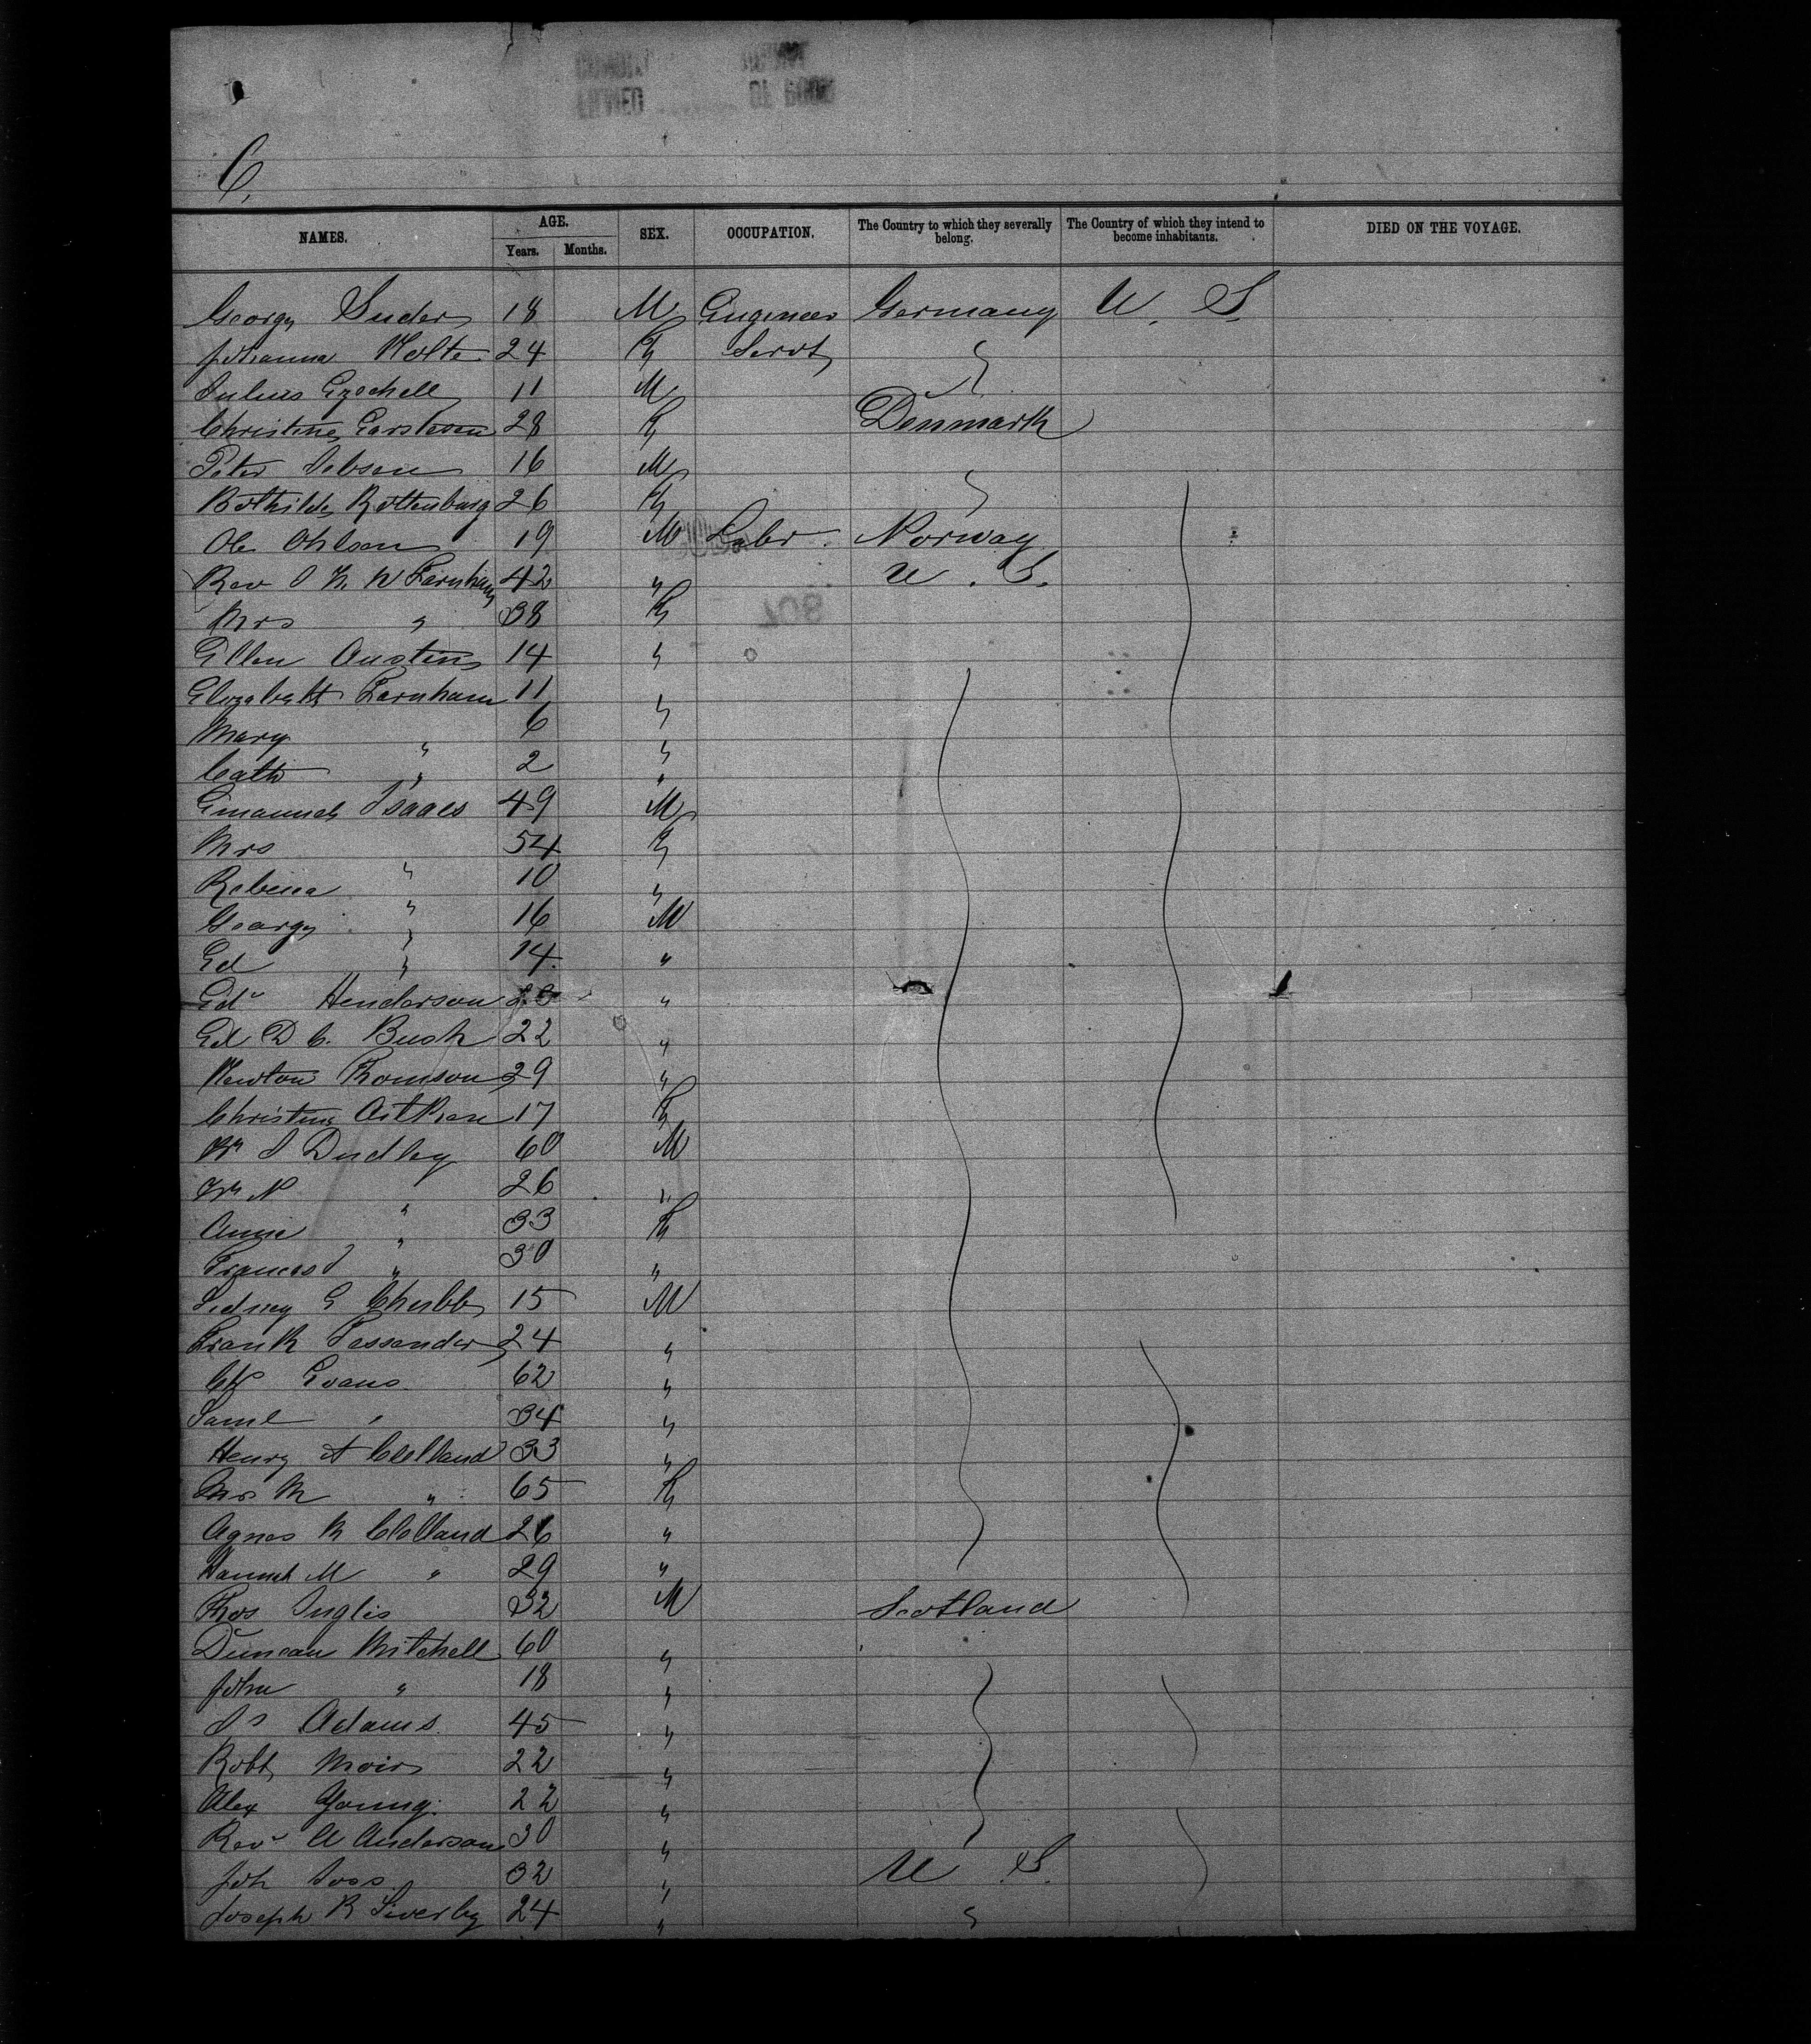 6.
NAMES. AGE. Years. Months. SEX. OCCUPATION. The Country to which they severally belong. The Country of which they intend to become inhabitants. DIED ON THE VOYAGE.
George Suder 18 M Engineer Germany U. S.
Johanna Nolte 24 F Servt
Julius 11 M
Christine Carstesen 28 F Denmark
Peter Jebsen 16 M
Bothilde Rottenburg 26 F
Ole Ohlsen 19 M Labr. Norway
Rev J M W Farnham 42 " U. S.
Mrs " 38 F
Ellen Austin 14 "
Elizabeth Farnham 11 "
Mary " 6 "
Cath " 2 "
Emanuel Isaacs 49 M
Mrs " 54 F
Rebecca " 10 "
George " 16 M
Ed " 14 "
Edw Henderson "
Ed D C. Bush 22 "
Newton Thomson 29 "
Christina Aitken 17 F
Wm J Dudley 60 M
Wm N " 26 "
Annie " 33 F
Frances J " 30 "
Sidney G Chubb 15 M
Frank Fessender 24 "
Evans 62 "
Saml " 34 "
Henry A Clelland 33 "
Mrs M " 65 F
Agnes M Clelland 26 "
Hannah M " 29 "
Thos Inglis 32 M Scotland
Duncan Mitchell 60 "
John " 18 "
Js Adams 45 "
Robt Moir 22 "
Alex Young 22 "
Revd A Anderson 30 "
Joh Joss 32 " U S.
Joseph R Siverly 24 " "